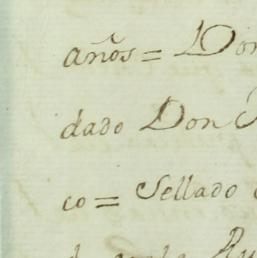 años = Don
dado Don
co = Sellado